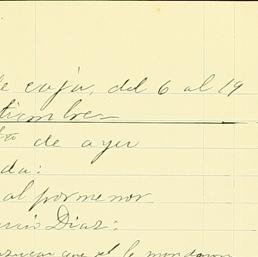 de caja, del 6 al 19
tiembre
to de ayer
da:
al pormenor
Diaz:
azucar que se le mandaron